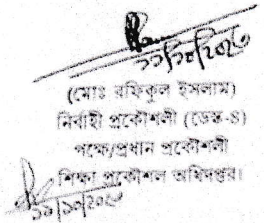 ১১/১০/২০২৩
(মোঃ রফিকুল ইসলাম)
নির্বাহী প্রকৌশলী (ডেস্ক-৪)
পক্ষে/প্রধান প্রকৌশলী
শিক্ষা প্রকৌশল অধিদপ্তর।